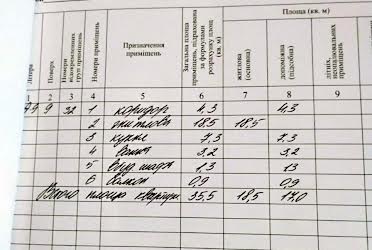 Площа (кв. м)
Літера
Поверх
Номери відокремлених груп приміщень
Номери приміщень
Призначення приміщень
Загальна площа приміщень, підрахована за формулами розрахунку площ (кв. м)
житлова (основна)
допоміжна (підсобна)
літніх, неопалювальних приміщень
1 2 3 4 5 6 7 8 9
9 32 1 коридор 4,3 4,3
2 житлова 18,5 18,5
3 кухня 7,3 7,3
4 3,2 3,2
5 шафа 1,3 1,3
6 балкон 0,9 0,9
Всього площа квартири 35,5 18,5 17,0